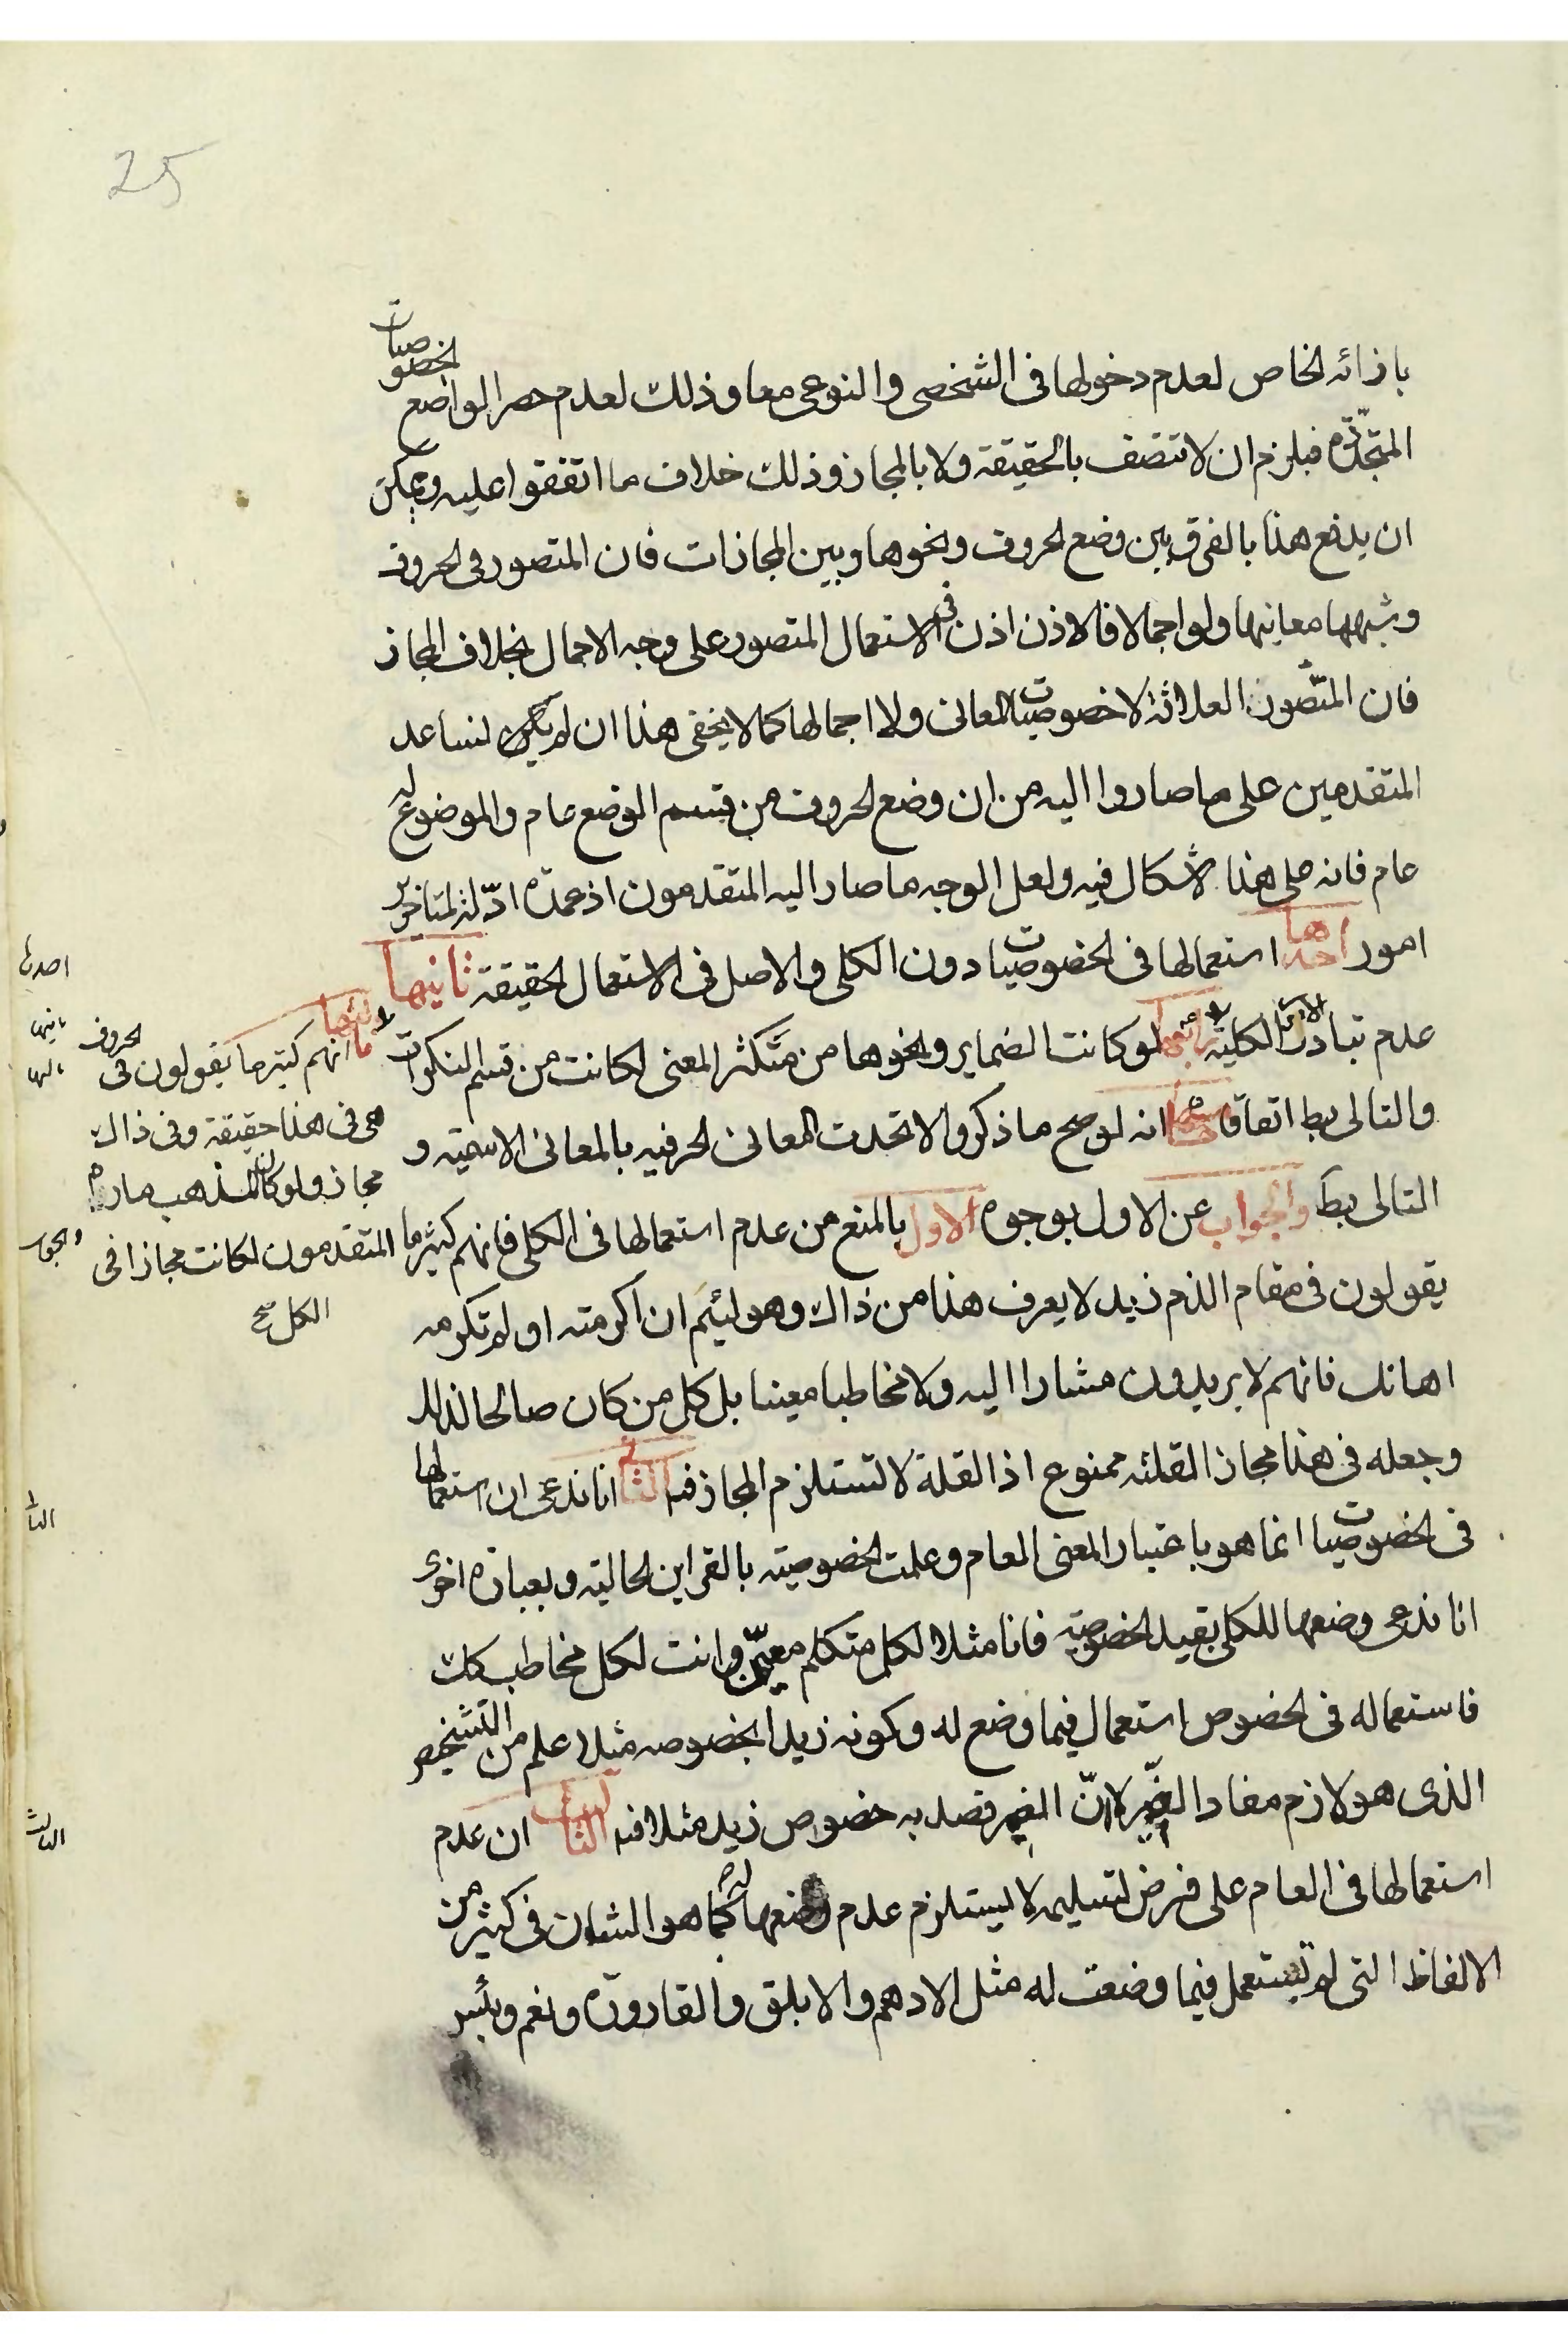 25
بازائه لخاص لعدم دخولها فى الشخصى والنوعى معا وذلك لعدم حصر الواضع لخصوصيات
المتجدّدة فيلزم ان لا تتصف بالحقيقة ولا بالمجاز وذلك خلاف ما اتفقوا عليه ويمكن
ان يدفع هذا بالفرق بين وضع لحروف ونحوها وبين المجازات فان المتصور فى لحروف
وشبهها معانيها ولو اجمالا فالاذن اذن فى الاستعمال المتصور على وجه الاجمال بخلاف المجاز
فان المتصور العلاقة لا خصوصيات المعانى ولا اجمالها كما لا يخفى هذا ان لم نكن لنساعد
المتقدمين على ما صاروا اليه من ان وضع لحروف من قسم الوضع عام والموضوع له
عام فانه على هذا لا اشكال فيه ولعل الوجه ما صار اليه المتقدمون اذ عمدة ادّلة المتاخرين
امور احدها استعمالها فى لخصوصيات دون الكلى والاصل فى الاستعمال لحقيقة ثانيها
عدم تبادر الامور الكلية رابعها لو كانت الضماير ونحوها من متكثر المعنى لكانت من قسم النكرات
والتالى بط اتفاقا خامسها انه لو صح ما ذكروا لاتحدت المعانى لحرفيه بالمعانى الاسمية و
التالى بط والجواب عن الاول بوجوه الاول بالمنع من عدم استعمالها فى الكلى فانهم كثيرما
يقولون فى مقام الذم زيد لا يعرف هذا من ذاك وهو لئيم ان اكرمته او لم تكرمه
اهانك فانهم لا يريدون مشارا اليه ولا مخاطبا معينا بل كل من كان صالحا لذلك
وجعله فى هذا مجازا لقلته ممنوع اذ القلة لا تستلزم المجاز فيه الثانى انا ندعى ان استعمالها
فى لخصوصيات انما هو باعتبار المعنى العام وعلمت لخصوصية بالقراين لحالية وبعبارة اخرى
انا ندعى وضعها للكلى بقيد لخصوصية فانا مثلا لكل متكلم معيّن وانت لكل مخاطب كك
فاستعماله فى لخصوص استعمال فيما وضع له وكونه زيدا بخصوصه مثلا علم من التشخيص
الذى هو لازم مفاد الضمير لا انّ الضمير قصد به خصوص زيد مثلا فيه الثالث ان عدم
استعمالها فى العام على فرض تسليمه لا يستلزم عدم وضعها له كما هو الشان فى كثير من
الالفاظ التى لم تستعمل فيما وضعت له مثل الادهم والابلق والقارورة ونعم وبئس
ثالثها انهم كثير ما يقولون فى لحروف
هى فى هذا حقيقة وفى ذاك
مجاز ولو كان المذهب ماراه
المتقدمون لكانت مجازا فى
الكل صح
احدها
ثانيها
ثالثها
والجواب
الثانى
الثالث